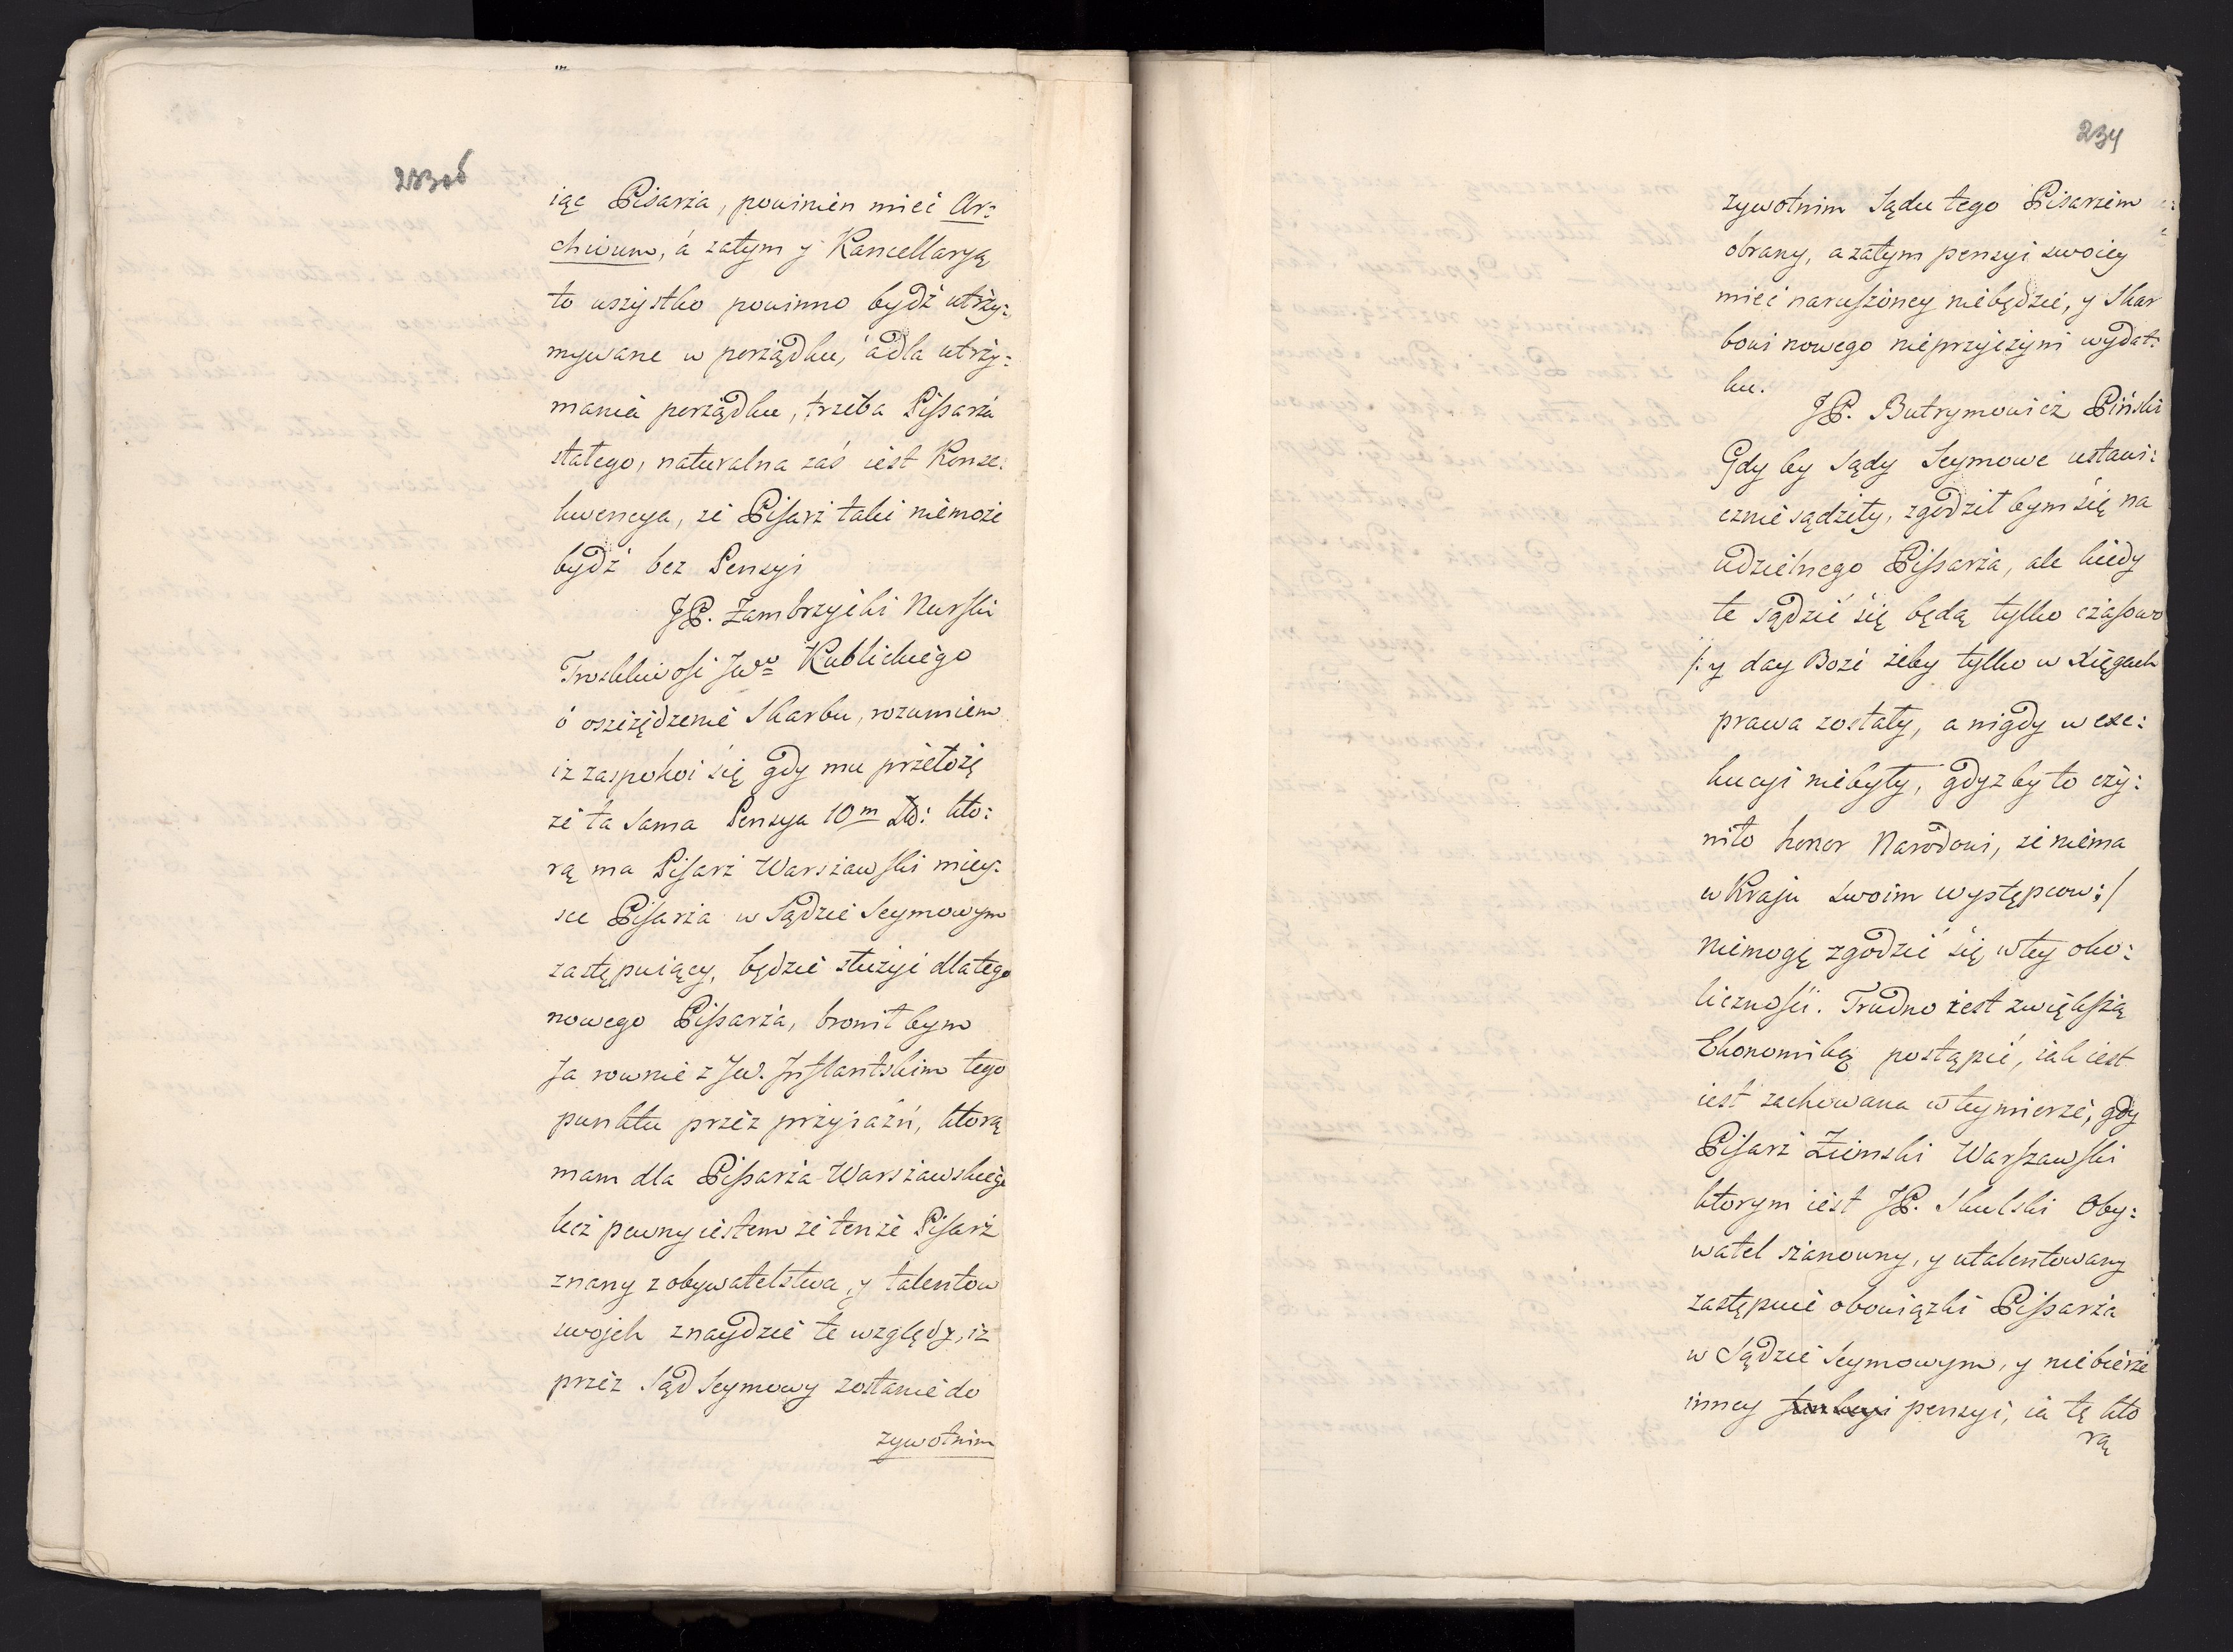 233ob
iąc Pisarża, powinien mieć Ar:
chiwum, á zatym y Kancellaryą
to wszystko powinno bydź utrży:
mywane w porżądku, ádla utrży:
mania porżądku, trzeba Pissarża
stałego, naturalna záś iest Konse:
kwencya, ze Pisarż taki niemoże
bydź bez Pensyi
JP. Zambrzycki Nurski
Troskliwość JWo Kublickiego
ó oszczędzenie Skarbu, rozumiem
iz zaspokoi się gdy mu przełożę
ze ta sama Pensya 10m Zł: kto:
rą ma Pisarż Warszawski miey:
sce Pisarża w Sądzie Seymowym
zastępuiący, będzie służyć dlatego
nowego Pissarża, bronił bym
Ja rownie z JW. Inflantskim tego
punktu przez przyiaźń, ktorą
mam dla Pissarża Warszawskiego
lecz pewny iestem ze tenże Pisarż
znany z obywatelstwa, y talentow
swojch znaydzie te względy, iz
przez Sąd Seymowy zostanie do
zywotnim
234
zywotnim Sądu tego Pisarzem
obrany, a zatym pensyi swoiey
mieć naruszoney niebędzie, y Skar
bowi nowego nieprzyczyni wydat:
ku.
JP. Butrymowicz Piński
Gdy by Sądy Seymowe ustawi:
cznie sądziły, zgodził bym się na
udzielnego Pissarża, ale kiedy
te sądzić się będą tylko czasowo
/: y day Boże żeby tylko w Xięgach
prawa zostały, a nigdy w exe:
kucyi niebyły, gdyz by to czy:
niło honor Narodowi, ze niema
w Kraju swoim występcow :/
niemogę zgodzić się w tey oko:
liczności. Trudno iest zwiększą
Ekonomiką postąpić, iak iest
iest zachowana w tey mierze, gdy
Pisarż Ziemski Warszawski
ktorym iest JP. Skulski Oby:
watel szanowny, y utalentowany
zastępuie obowiązki Pissarża
w Sądzie Seymowym, y niebierze
inney pensyi, ia tę kto
rą